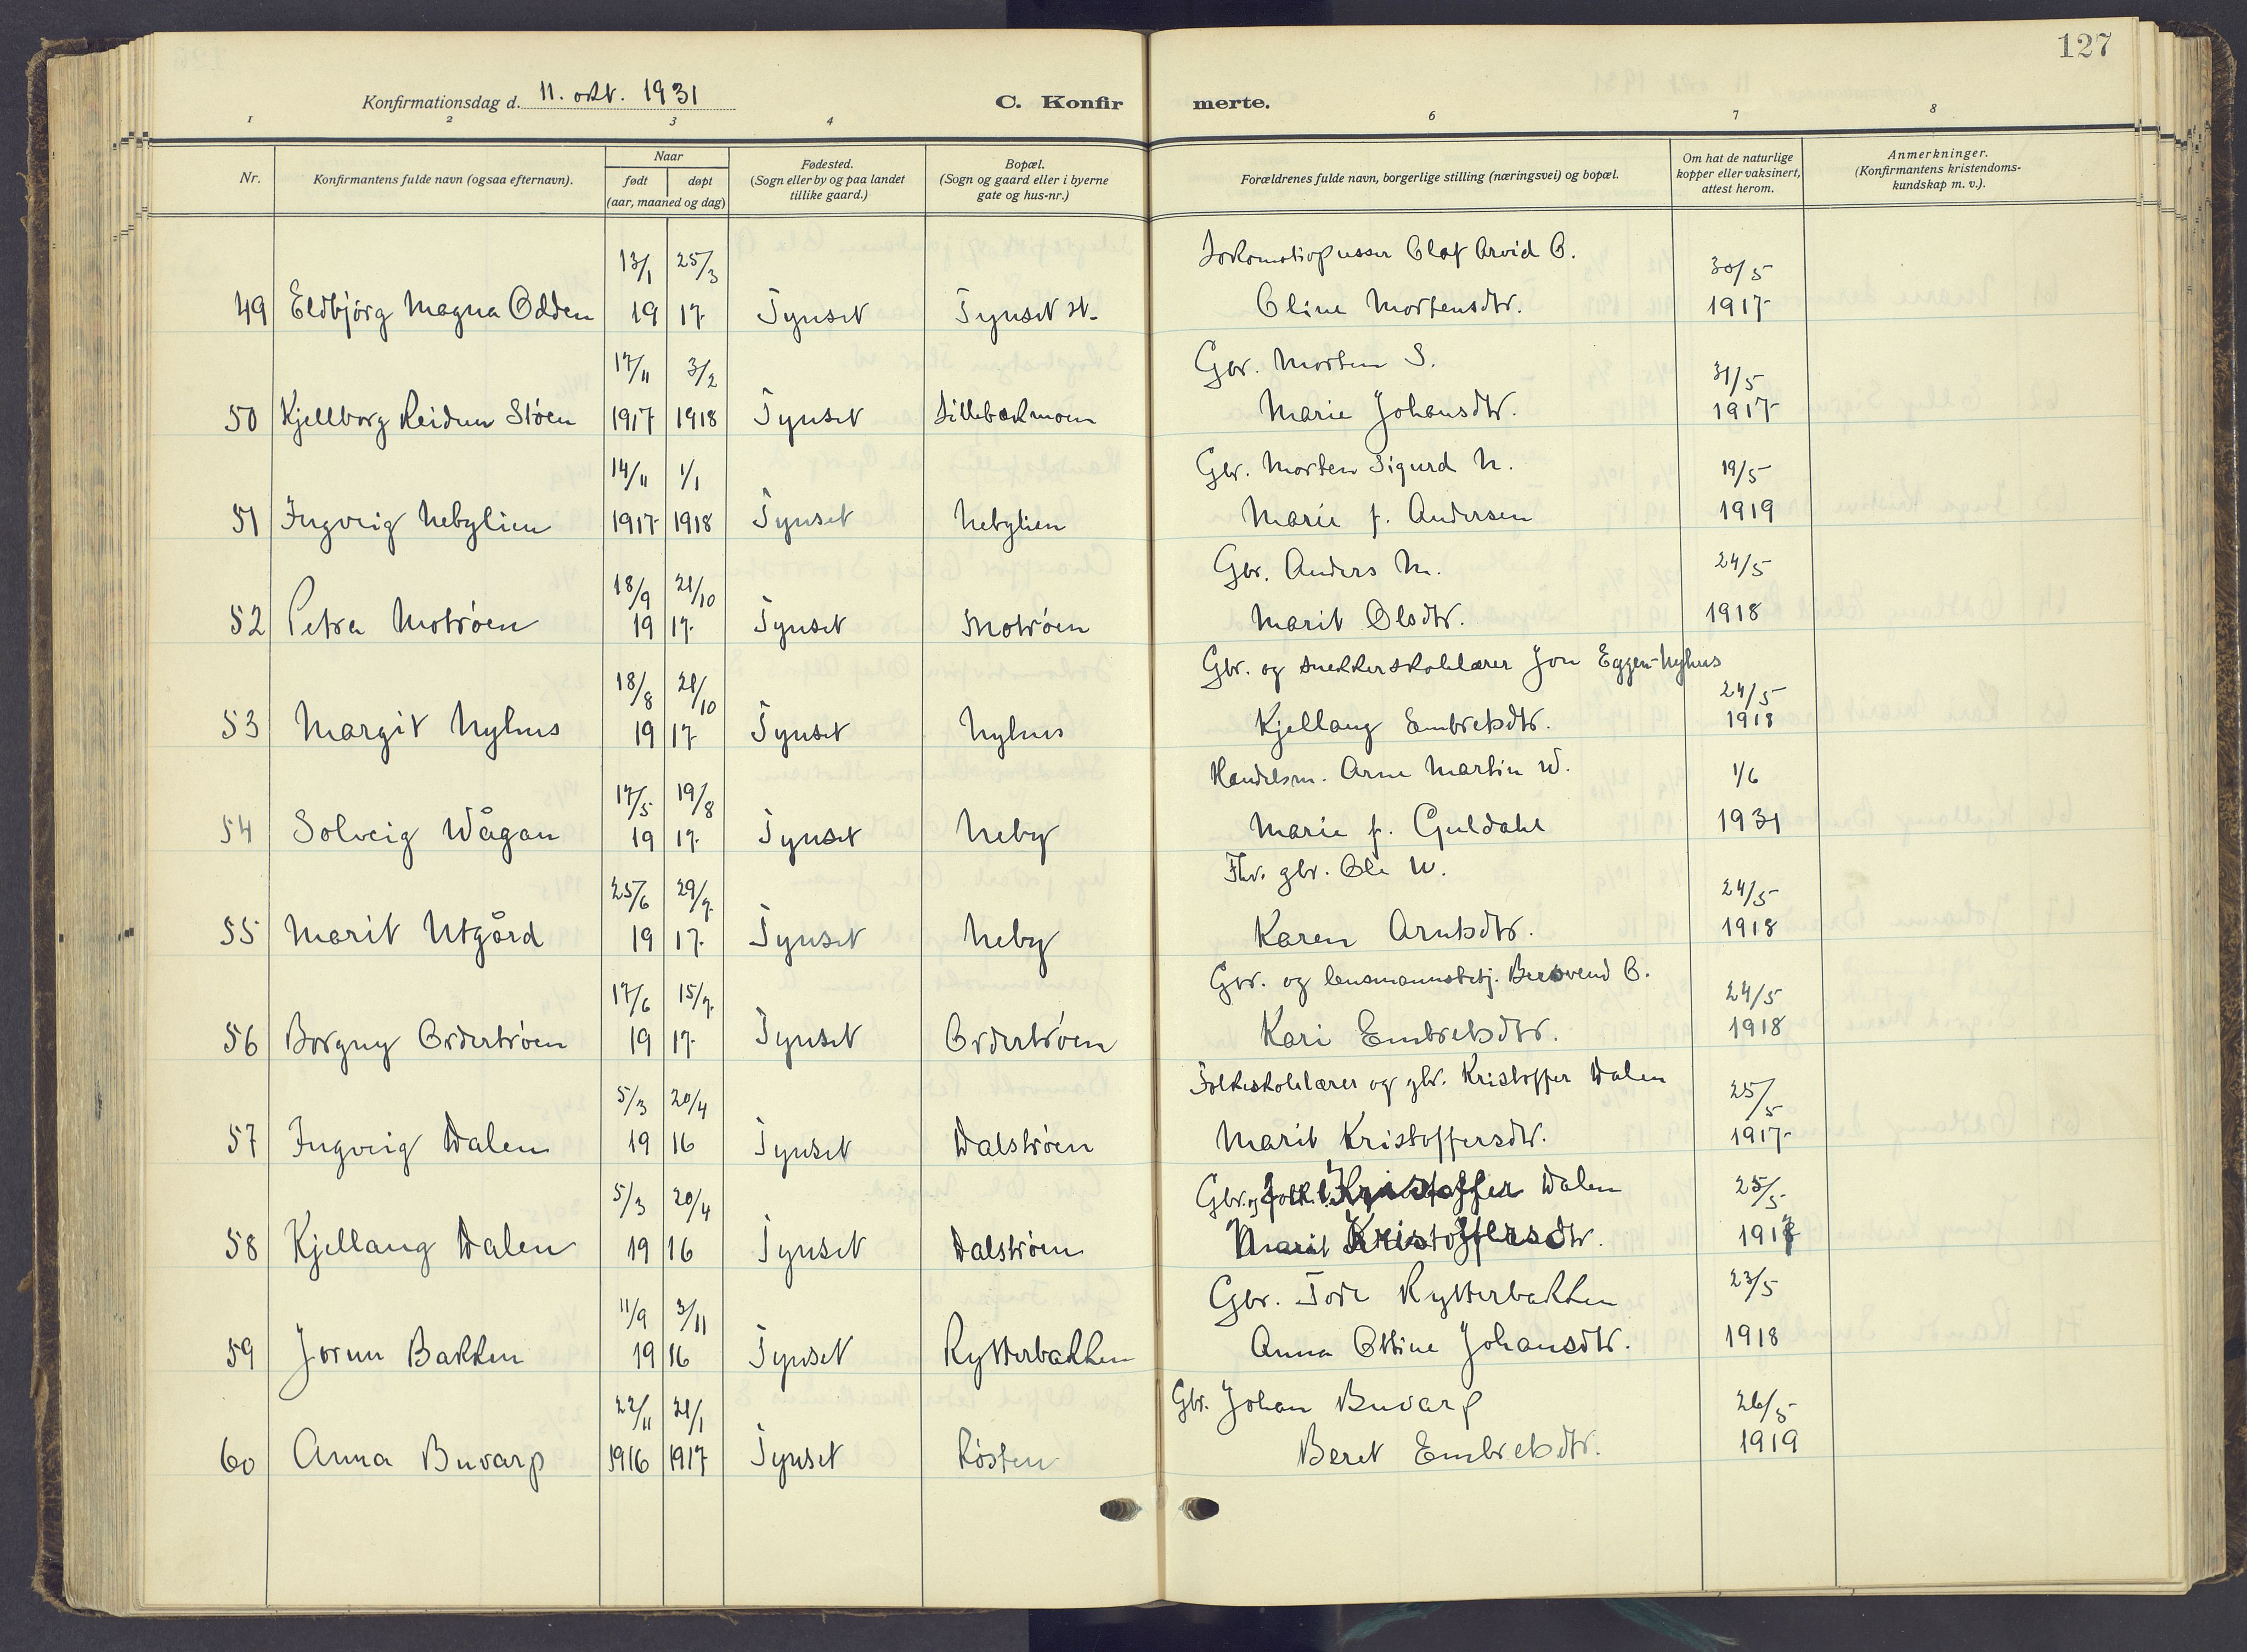 127
Konfirmationsdag d. 11. okt. 1931
C. Konfir merte.
1 2 3 4 6 7 8
Nr.
Konfirmantens fulde navn (ogsaa efternavn).
Naar
født døpt
(aar, maaned og dag)
Fødested.
(Sogn eller by og paa landet
tillike gaard.)
Bopæl.
(Sogn og gaard eller i byerne
gate og hus-nr.)
Forældrenes fulde navn, borgerlige stilling (næringsvei) og bopæl.
Om hat de naturlige
kopper eller vaksinert,
attest herom.
Anmerkninger.
(Konfirmantens kristendoms-
kundskap m. v.).
13/1 25/3 Lokomotivpusser Olaf Arvid O. 30/5
49 Eldbjörg Magna Odden 19 17 Tynset Tynset st. Oline Mortensdtr. 1917
17/11 3/2 Gbr. Morten S. 31/5
50 Kjellborg Reidun Støen 1917 1918 Tynset Lillebækmoen Marie Johansdtr. 1917
14/11 1/1 Gbr. Morten Sigurd N. 19/5
51 Ingveig Nebylien 1917 1918 Tynset Nebylien Marie f. Andersen 1919
18/9 21/10 Gbr. Anders M. 24/5
52 Petra Motrøen 19 17 Tynset Motrøen Marit Olsdtr. 1918
18/8 21/10 Gbr. og snekkerskolelærer Jon Eggen-Nyhus 24/5
53 Margit Nyhus 19 17 Tynset Nyhus Kjellaug Embretsdtr. 1918
17/5 19/8 Handelsm. Arne Martin W. 1/6
54 Solveig Wågan 19 17 Tynset Neby Marie f. Guldahl 1931
25/6 29/7 Fhv. gbr. Ole U. 24/5
55 Marit Utgård 19 17 Tynset Neby Karen Arntsdtr. 1918
17/6 15/7 Gbr. og lensmannsbetj. Bersvend O. 24/5
56 Borgny Ordertrøen 19 17 Tynset Ordertrøen Kari Embretsdtr. 1918
5/3 20/4 Folkeskolelærer og gbr. Kristoffer Dalen 25/5
57 Ingveig Dalen 19 16 Tynset Dalstrøen Marit Kristoffersdtr. 1917
5/3 20/4 Gbr. og folk.l. Kristoffer Dalen 25/5
58 Kjellaug Dalen 19 16 Tynset Dalstrøen Marit Kristoffersdtr. 1917
11/9 3/11 Gbr. Tore Rytterbakken 23/5
59 Jorun Bakken 19 16 Tynset Rytterbakken Anna Ottine Johansdtr. 1918
22/11 21/1 Gbr. Johan Buvarp 26/5
60 Anna Buvarp 1916 1917 Tynset Røsten Beret Embretsdtr. 1919